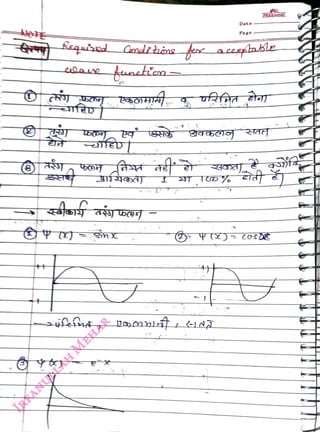 Date
Page
NOTE
Required Conditions for acceptable
wave function —
① तरंग फलन एकलमानी व परिमित होना
चाहिए।
② तरंग फलन एवं उसके अवकलन सतत
होने चाहिए।
③ तरंग फलन नियत नहीं हो सकता है क्योंकि
उसकी प्रायिकता 1 या 100% होती है।
→ स्वीकार्य तरंग फलन —
① Ψ(x) = sinx ② Ψ(x) = cosx
+1 +1
-1 -1
→ परिमित, एकलमानी, सतत
③ Ψ(x) = e-x
IRFANULLAH MEHAR